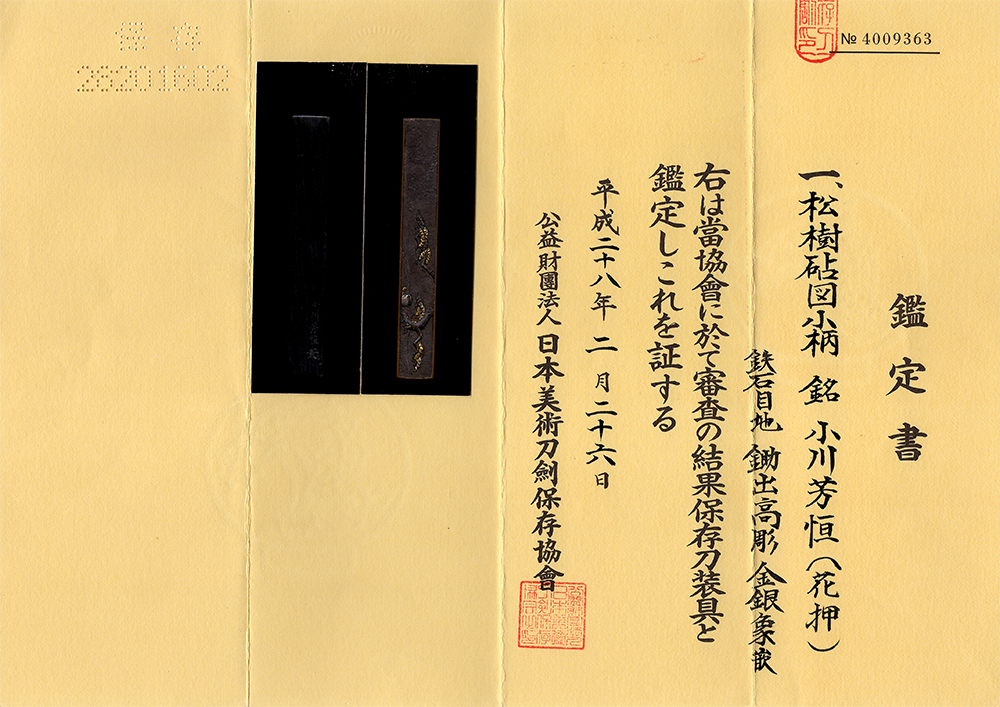 № 4009363
鑑定書
一、松樹砧図小柄 銘 小川芳恒（花押）
鉄石目地 鋤出高彫 金銀象嵌
右は當協會に於て審査の結果保存刀装具と
鑑定しこれを証する
平成二十八年 二月二十六日
公益財團法人 日本美術刀劍保存協會
保存
28201602